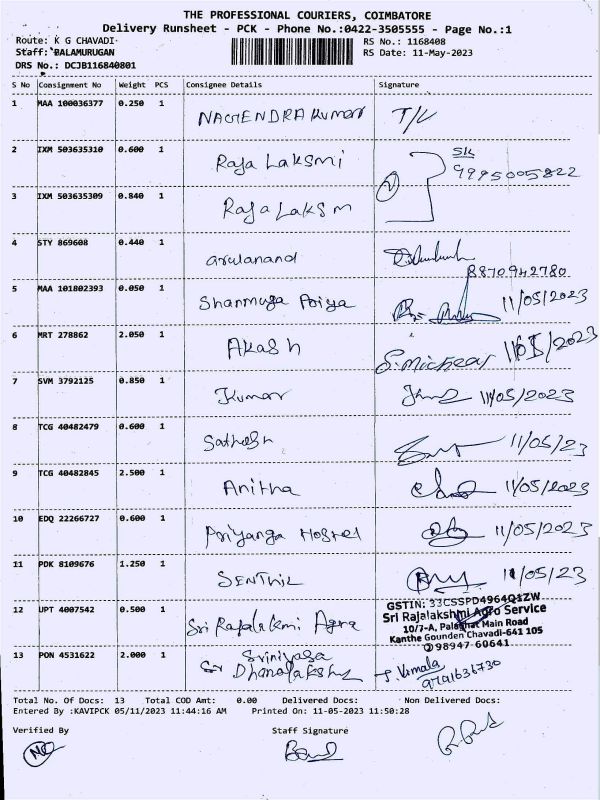 THE PROFESSIONAL COURIERS, COIMBATORE
Delivery Runsheet - PCK - Phone No.:0422-3505555 - Page No.:1
Route: K G CHAVADI
RS No.: 1168408
Staff: BALAMURUGAN
RS Date: 11-May-2023
DRS No.: DCJB116840801
S No Consignment No Weight PCS Consignee Details Signature
1 MAA 100036377 0.250 1 NAGENDRA Kumar T/V
2 IXM 503635310 0.600 1 Raja Laksmi SK
9995005822
3 IXM 503635309 0.840 1 Raja Laksm
4 STY 869608 0.440 1 arulanand
8870942780
5 MAA 101802393 0.050 1 Shanmuga Poiya 11/05/2023
6 MRT 278862 2.050 1 AKash S.michear 11/05/2023
7 SVM 3792125 0.850 1 Kumar 11/05/2023
8 TCG 40482479 0.600 1 Sathesh 11/05/23
9 TCG 40482845 2.500 1 Anitha 11/05/2023
10 EDQ 22266727 0.600 1 Priyanga Hostel 11/05/2023
11 PDK 8109676 1.250 1 SENTHIL 11/05/23
GSTIN: 33CSSPD4964Q1ZW
12 UPT 4007542 0.500 1 Sri Rajalakmi Agra Sri Rajalakshmi Agro Service
10/7-A, Palaghat Main Road
Kanthe Gounden Chavadi-641 105
98947 60641
13 PON 4531622 2.000 1 Srinivasa
Dhanalakshmi J. Vimala
9791636730
Total No. Of Docs: 13 Total COD Amt: 0.00 Delivered Docs: Non Delivered Docs:
Entered By :KAVIPCK 05/11/2023 11:44:16 AM Printed On: 11-05-2023 11:50:28
Verified By Staff Signature